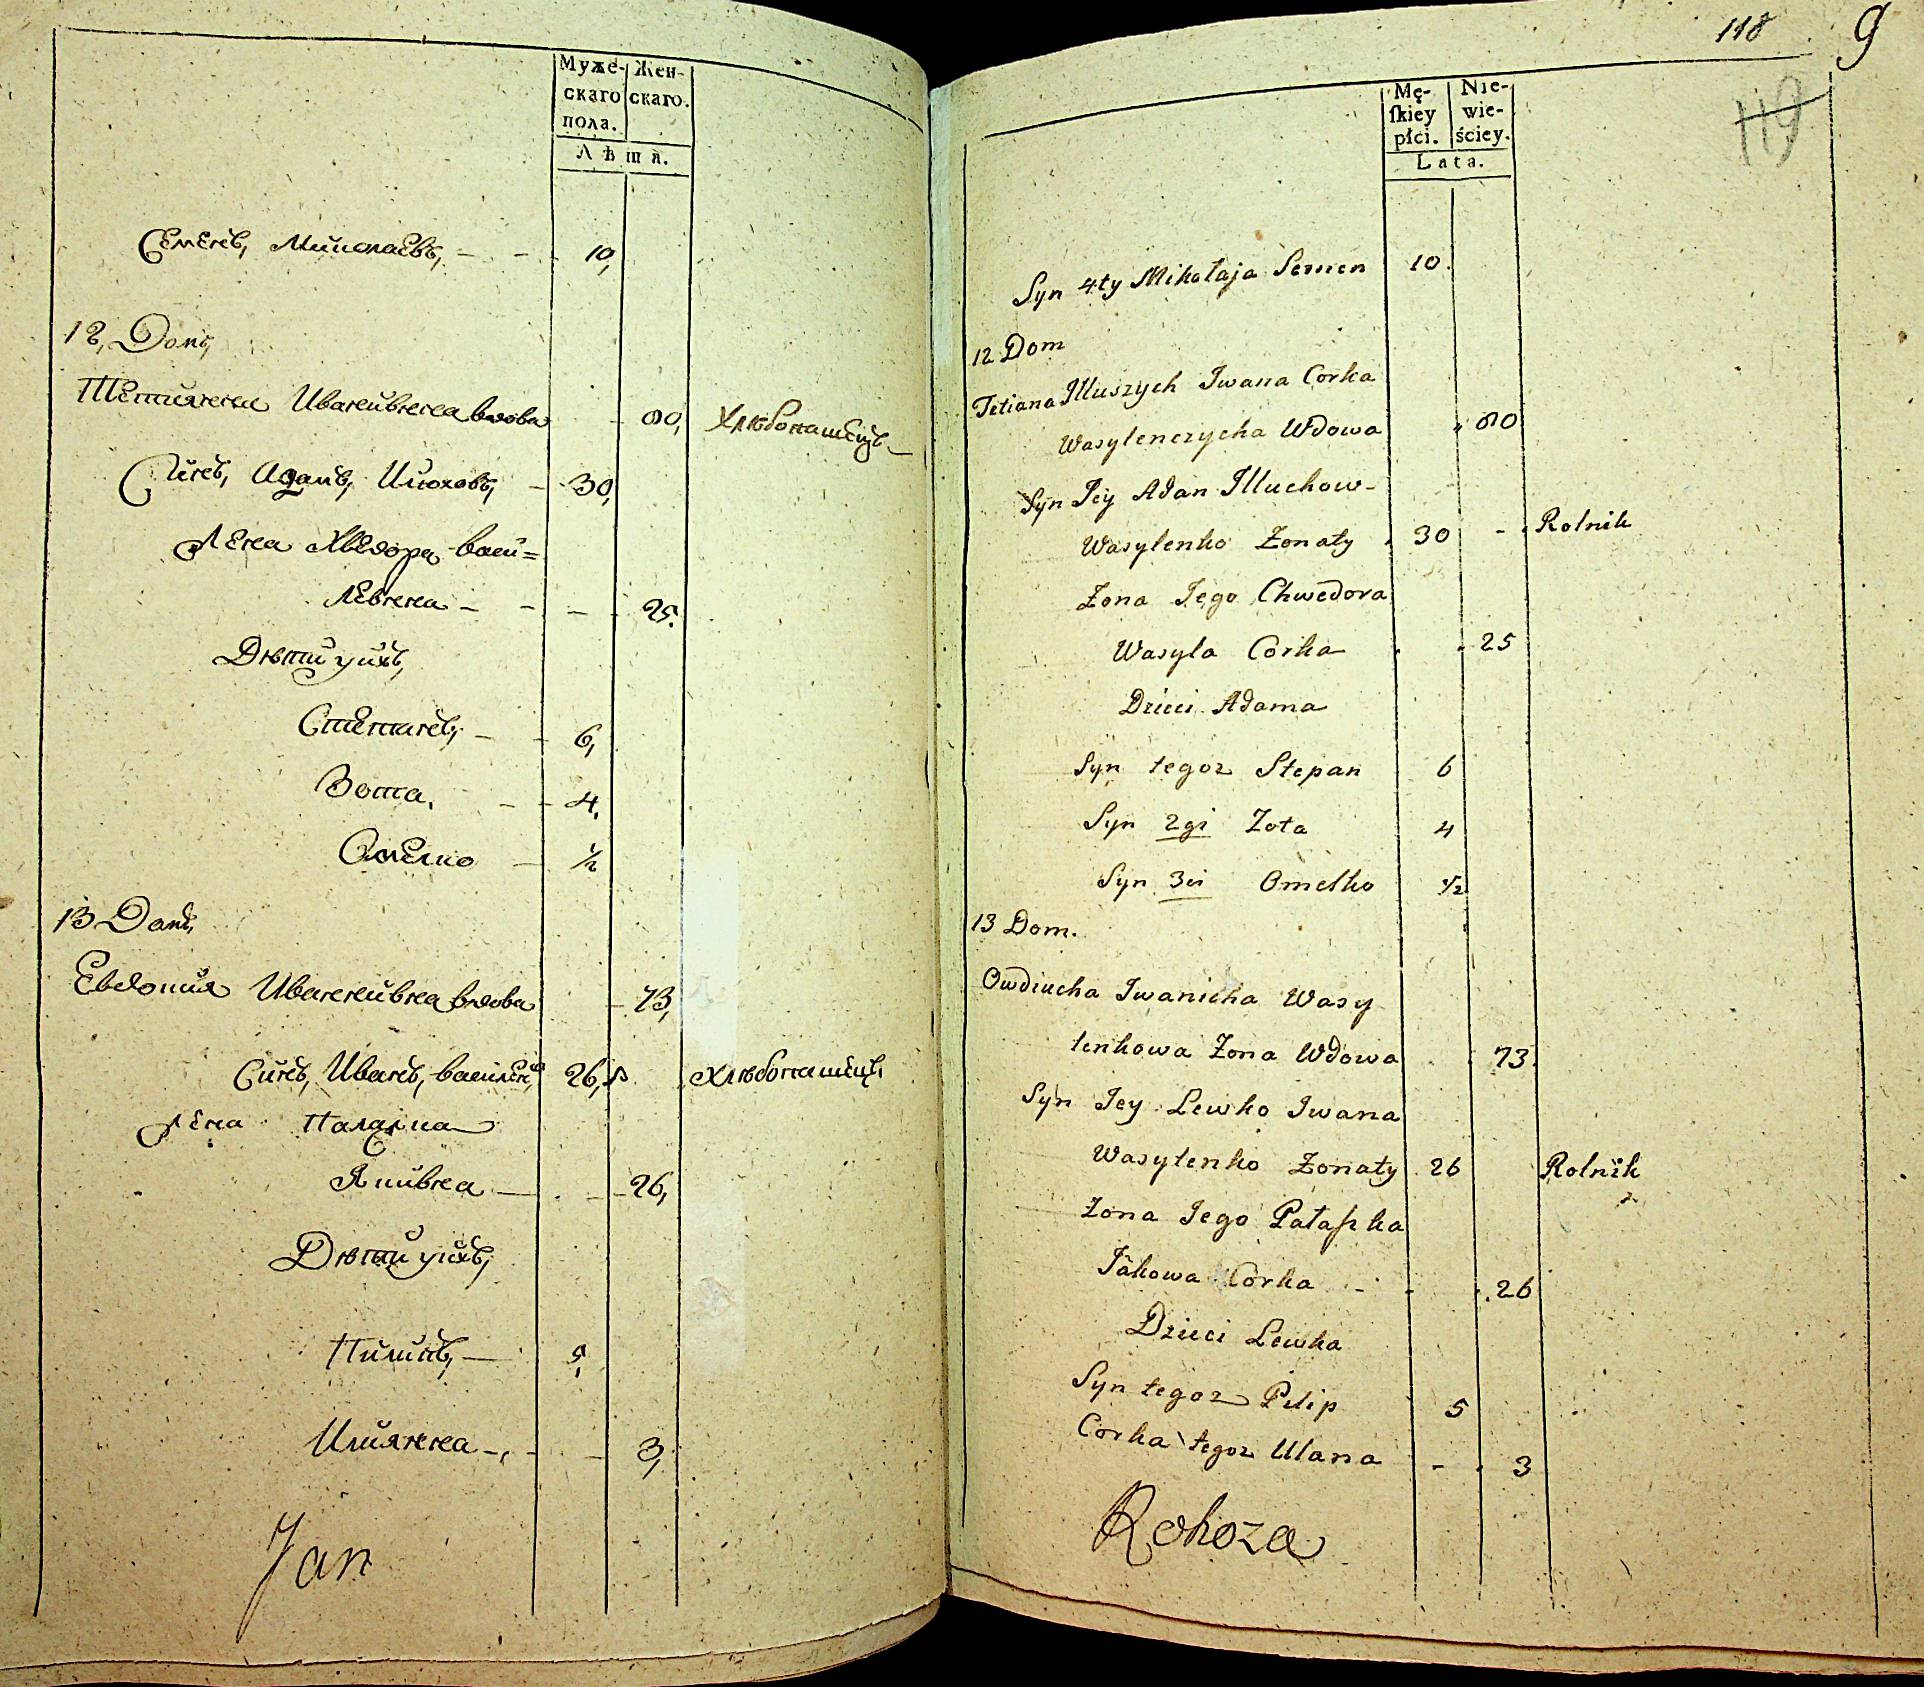 Муже-
скаго
пола.
Жен-
скаго.
Лѣта.
Семенъ, Миколаевъ, - - 10,
12, Домъ,
Тетиянна Иванивнна вдова - 80, Хлѣбопашецъ
Синъ, Адамъ, Илюховъ, - 30,
Жена Хведора васи=
левнна - - - 25.
Дѣти ихъ,
Степанъ, - - 6,
Зота, - - 4,
Омелко - ½
13 Домъ,
Евдокия Иваненивна вдова - 73,
Синъ, Иванъ, 26, Хлѣбопашецъ,
Жена Палажка
Якивна - - - 26,
Дѣти ихъ,
Пилипъ, - 5,
Илиянна - - - 3,
Jan
118 9
119
Mę-
ſkiey
płci.
Nie-
wie-
ściey.
Lata.
Syn 4ty Mikołaja Semen 10.
12 Dom
Tetiana Illuszych Iwana Corka
Wasylenczycha Wdowa 80
Syn Jey Adan Illuchow-
Wasylenko Żonaty 30 - Rolnik
Żona Jego Chwedora
Wasyla Corka 25
Dzieci Adama
Syn tegoz Stepan 6
Syn 2gi Zota 4
Syn 3ci Omelko ½
13 Dom.
Owdiucha Iwanicha Wasy
lenkowa Żona Wdowa 73.
Syn Jey Lewko Iwana
Wasylenko Żonaty 26 Rolnik
Żona Jego Palaſzka
Jakowa Corka - 26
Dzieci Lewka
Syn tegoz Pilip 5
Corka tegoz Ulana - 3
Rohoza